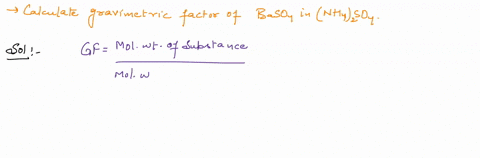 → Calculate gravimetric factor of BaSO4 in (NH4)2SO4.
Sol:- GF = Mol. wt. of Substance
Mol. w